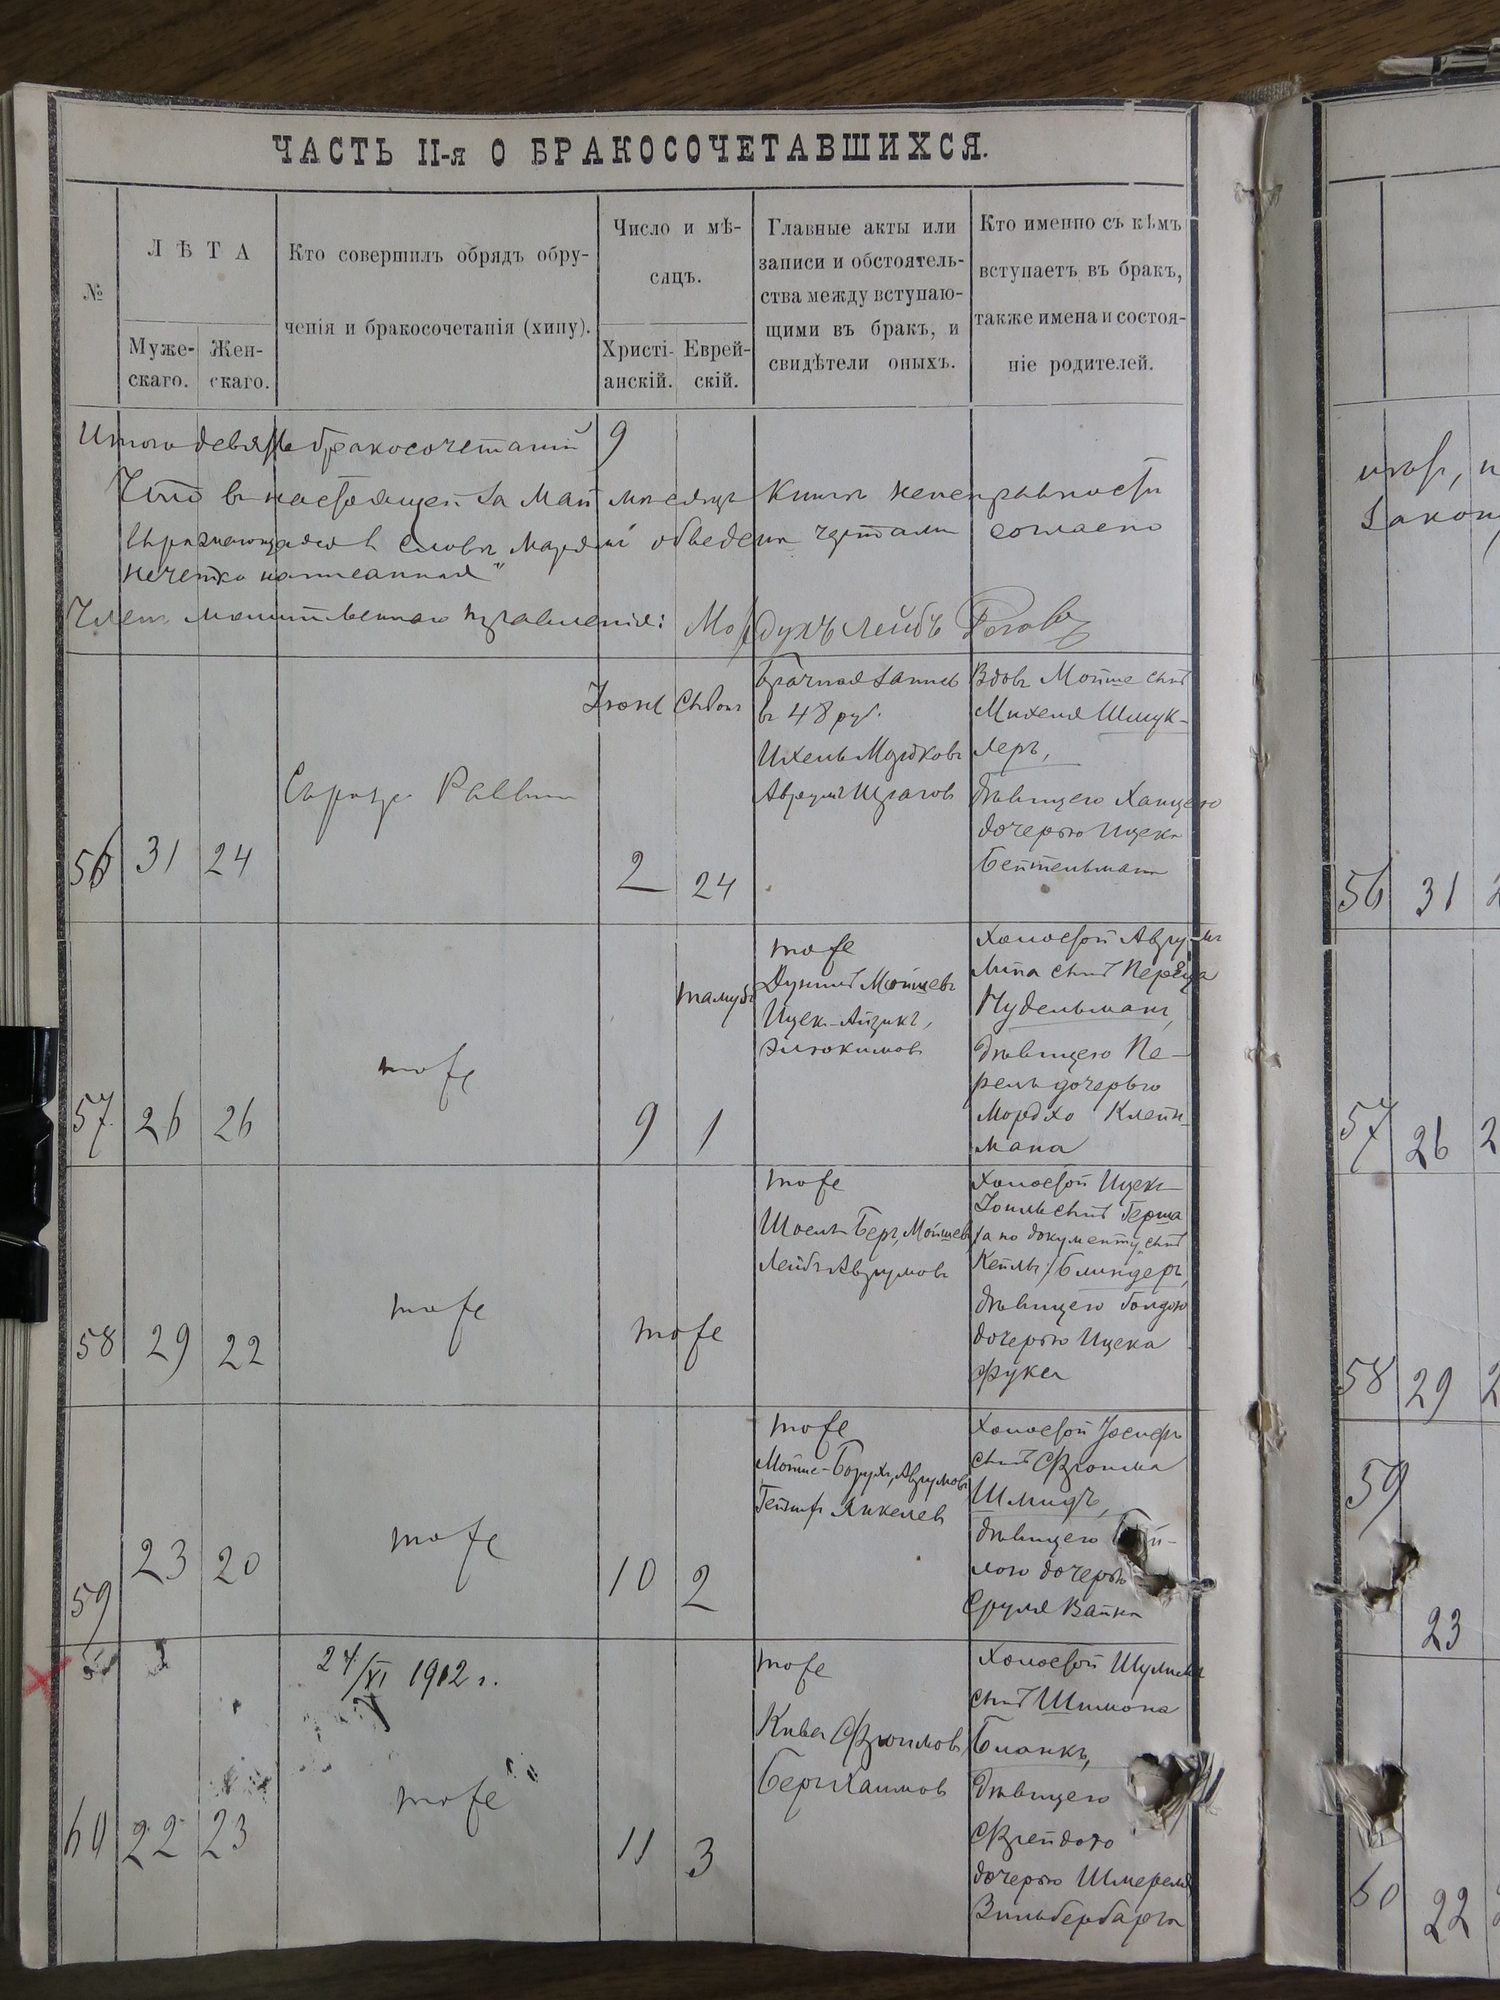 ЧАСТЬ II-я О БРАКОСОЧЕТАВШИХСЯ.
№
ЛѢТА
Муже-
скаго.
Жен-
скаго.
Кто совершилъ обрядъ обру-
ченія и бракосочетанія (хипу).
Число и мѣ-
сяцъ.
Христі-
анскій.
Еврей-
скій.
Главные акты или
записи и обстоятель-
ства между вступаю-
щими въ бракъ, и
свидѣтели оныхъ.
Кто именно съ кѣмъ
вступаетъ въ бракъ,
также имена и состоя-
ніе родителей.
Итого девять бракосочетаній 9
Что въ настоящей за Май мѣсяцъ книгѣ
въ словѣ обведена чертами согласно
нечетко написанная"
Членъ молитвеннаго правленія: Мордухъ Лейбъ
56 31 24
Раввин
2 24
Брачная запись
въ 48 руб.
Ихель Мордковъ
Аврумъ Шраговъ
Вдовъ Мойше сынъ
Михеля Шмук-
леръ,
дѣвицею Ханцею
дочерью Ицека
Бейтельмана
57 26 26
тоже
Тамузъ
9 1
тоже
Мойшевъ
Ицек-Айзикъ,
Элюкимовъ
Холостой Аврумъ
Липа сынъ Переца
Нудельманъ,
дѣвицею Пе-
рель дочерью
Мордко Клейн-
мана
58 29 22
тоже
тоже
тоже
Шоель Беръ, Мойшевъ
Лейбъ Аврумовъ
Холостой Ицекъ
Іоиль сынъ Герша
/а по документу сынъ
Кейлы/ Блиндеръ,
дѣвицею Голдою
дочерью Ицека
Фукса
59 23 20
тоже
10 2
тоже
Мойше-Борухъ, Аврумовъ
Янкелев
Холостой Іосифъ
сынъ Фроима
Шмидъ,
дѣвицею
лою дочерью
Сруля Вайна
60 22 23
24/XI 1912 г.
тоже
11 3
тоже
Кива Фроимовъ
Беръ Хаимов
Холостой Шулимъ
сынъ Шимона
Бланкъ,
дѣвицею
Фрейдою
дочерью Шмереля
Зильберберга
56 31
57 26
58 29
59
23
60 22